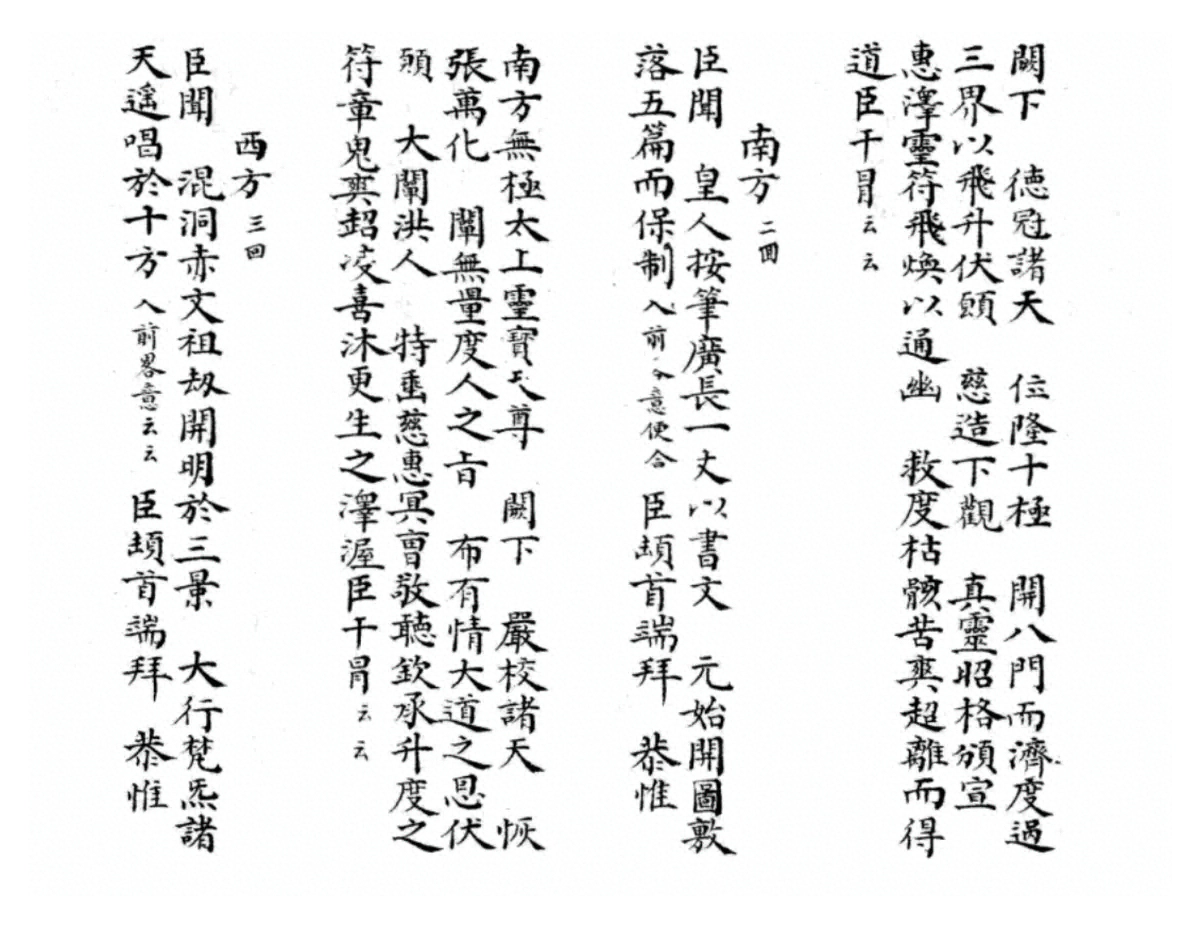 闕下　德冠諸天　位隆十極　開八門而濟度過
三界以飛升伏願　慈造下觀　真靈昭格頒宣
惠澤靈符飛煥以通幽　救度枯骸苦爽超離而得
道臣干冒云云
南方二囬
臣聞　皇人按筆廣長一丈以書文　元始開圖敷
落五篇而保制入前　意便合　臣頓首端拜　恭惟
南方無極太上靈寶天尊　闕下　嚴校諸天　恢
張萬化　闡無量度人之旨　布有情大道之恩伏
願　大闡洪人　特垂慈惠冥曹敬聽欽承升度之
符章鬼爽超凌喜沐更生之澤渥臣干冒云云
西方三回
臣聞　混洞赤文祖劫開明於三景　大行梵炁諸
天遥唱於十方入前畧意云云　臣頓首端拜　恭惟